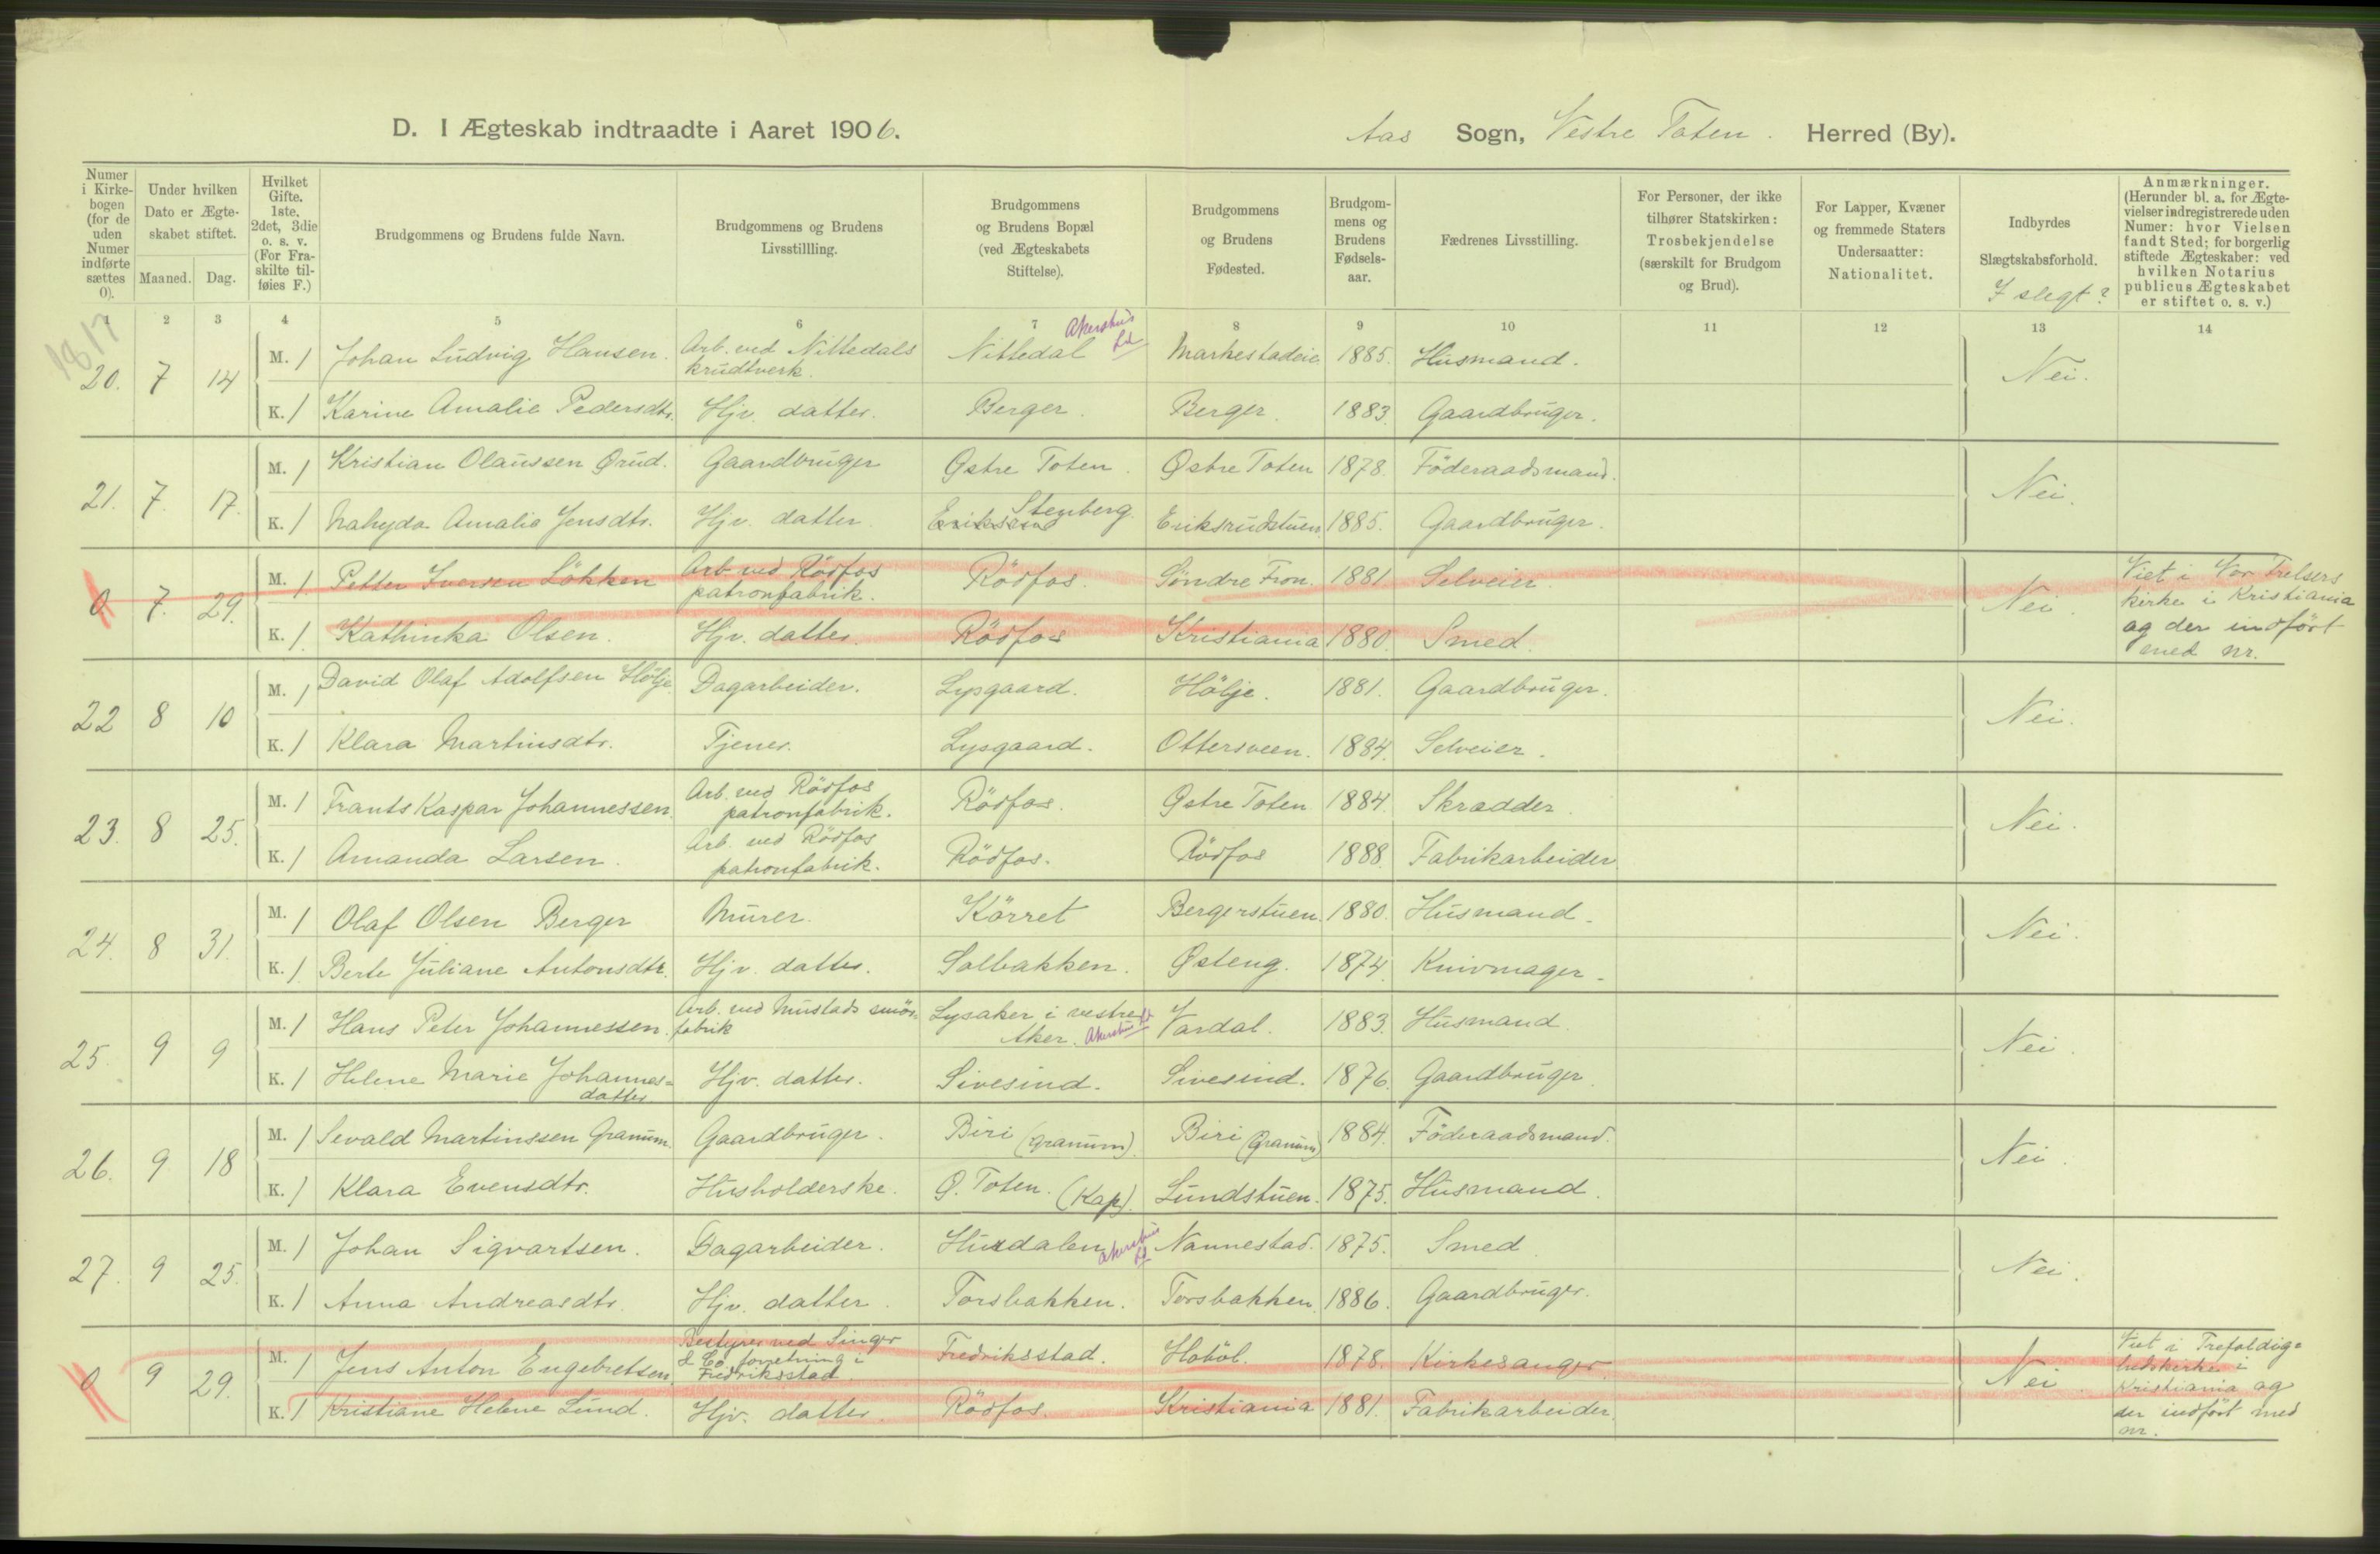 D. I Ægteskab indtraadte i Aaret 1906.
Aas Sogn, Vestre Toten. Herred (By).
Numer i Kirkebogen (for de uden Numer indførte sættes 0).
Under hvilken Dato er Ægteskabet stiftet.
Maaned. Dag.
Hvilket Gifte. 1ste, 2det, 3die o. s. v. (For Fraskilte tilføies F.)
Brudgommens og Brudens fulde Navn.
Brudgommens og Brudens Livsstillling.
Brudgommens og Brudens Bopæl (ved Ægteskabets Stiftelse).
Brudgommens og Brudens Fødested.
Brudgommens og Brudens Fødselsaar.
Fædrenes Livsstilling.
For Personer, der ikke tilhører Statskirken: Trosbekjendelse (særskilt for Brudgom og Brud).
For Lapper, Kvæner og fremmede Staters Undersaatter: Nationalitet.
Indbyrdes Slægtskabsforhold.
I slegt?
Anmærkninger. (Herunder bl. a. for Ægtevielser indregistrerede uden Numer: hvor Vielsen fandt Sted; for borgerlig stiftede Ægteskaber: ved hvilken Notarius publicus Ægteskabet er stiftet o. s. v.)
1 2 3 4 5 6 7 8 9 10 11 12 13 14
1817
20. 7 14 M. 1 Johan Ludvig Hansen. Arb. ved Nittedals krudtverk. Nittedal Akershus Markestadeie 1885. Husmand. Nei.
K. 1 Karine Amalie Pedersdtr. Hjv. datter. Berger. Berger. 1883. Gaardbruger.
21. 7. 17. M. 1 Kristian Olaussen Ørud. Gaardbruger Østre Toten. Østre Toten 1878. Föderaadsmand. Nei.
K. 1 Nahyda Amalie Jensdtr. Hjv. datter. Eriksrud Stenberg. Eriksrudstuen 1885. Gaardbruger.
0 7. 29. M. 1 Petter Iversen Lökken Arb. ved Rödfos patronfabrik. Rödfos. Söndre Fron. 1881 Selveier. Nei. Viet i Vor Frelsers kirke i Kristiania og der indført med nr.
K. 1. Kathinka Olsen. Hjv. datter. Rödfos Kristiania 1880. Smed.
22 8 10 M. 1 David Olaf Adolfsen Hölje. Dagarbeider. Lysgaard. Hölje. 1881. Gaardbruger. Nei.
K. 1 Klara Martinsdtr. Tjener. Lysgaard. Ottersveen. 1884. Selveier.
23. 8 25. M. 1 Frants Kaspar Johannessen. Arb. ved Rödfos patronfabrik. Rödfos. Østre Toten 1884. Skrædder Nei.
K. 1 Amanda Larsen. Arb. ved Rödfos patronfabrik. Rödfos. Rödfos 1888. Fabrikarbeider
24. 8 31. M. 1 Olaf Olsen Berger Murer. Körret Bergerstuen. 1880. Husmand. Nei.
K. 1. Berte Juliane Antonsdtr. Hjv. datter. Solbakken. Østeng. 1874. Knivmager.
25. 9 9 M. 1 Hans Peter Johannessen. Arb. ved Mustads smörfabrik Lysaker i vestre Aker. Akershus Vardal. 1883. Husmand. Nei.
K. 1 Helene Marie Johannesdatter Hjv. datter. Sivesind. Sivesind. 1876. Gaardbruger.
26. 9. 18 M. 1 Sevald Martinssen Granum. Gaardbruger. Biri (Granum). Biri (Granum) 1884. Föderaadsmand. Nei.
K. 1 Klara Evensdtr. Husholderske. Ø. Toten. (Kap). Lundstuen. 1875. Husmand.
27. 9 25. M. 1 Johan Sigvartsen. Dagarbeider. Hurdalen Akershus Nannestad. 1875. Smed. Nei.
K. 1 Anna Andreasdtr. Hjv. datter. Torsbakken. Torsbakken. 1886. Gaardbruger.
0 9 29. M. 1 Jens Anton Engebretsen. Bestyrer ved Singer & Co. forretning i Fredriksstad. Fredriksstad. Haböl. 1878. Kirkesanger. Nei. Viet i Trefoldighedskirken i Kristiania og der indført med nr.
K. 1 Kristiane Helene Lund. Hjv. datter. Rödfos. Kristiania 1881. Fabrikarbeider.